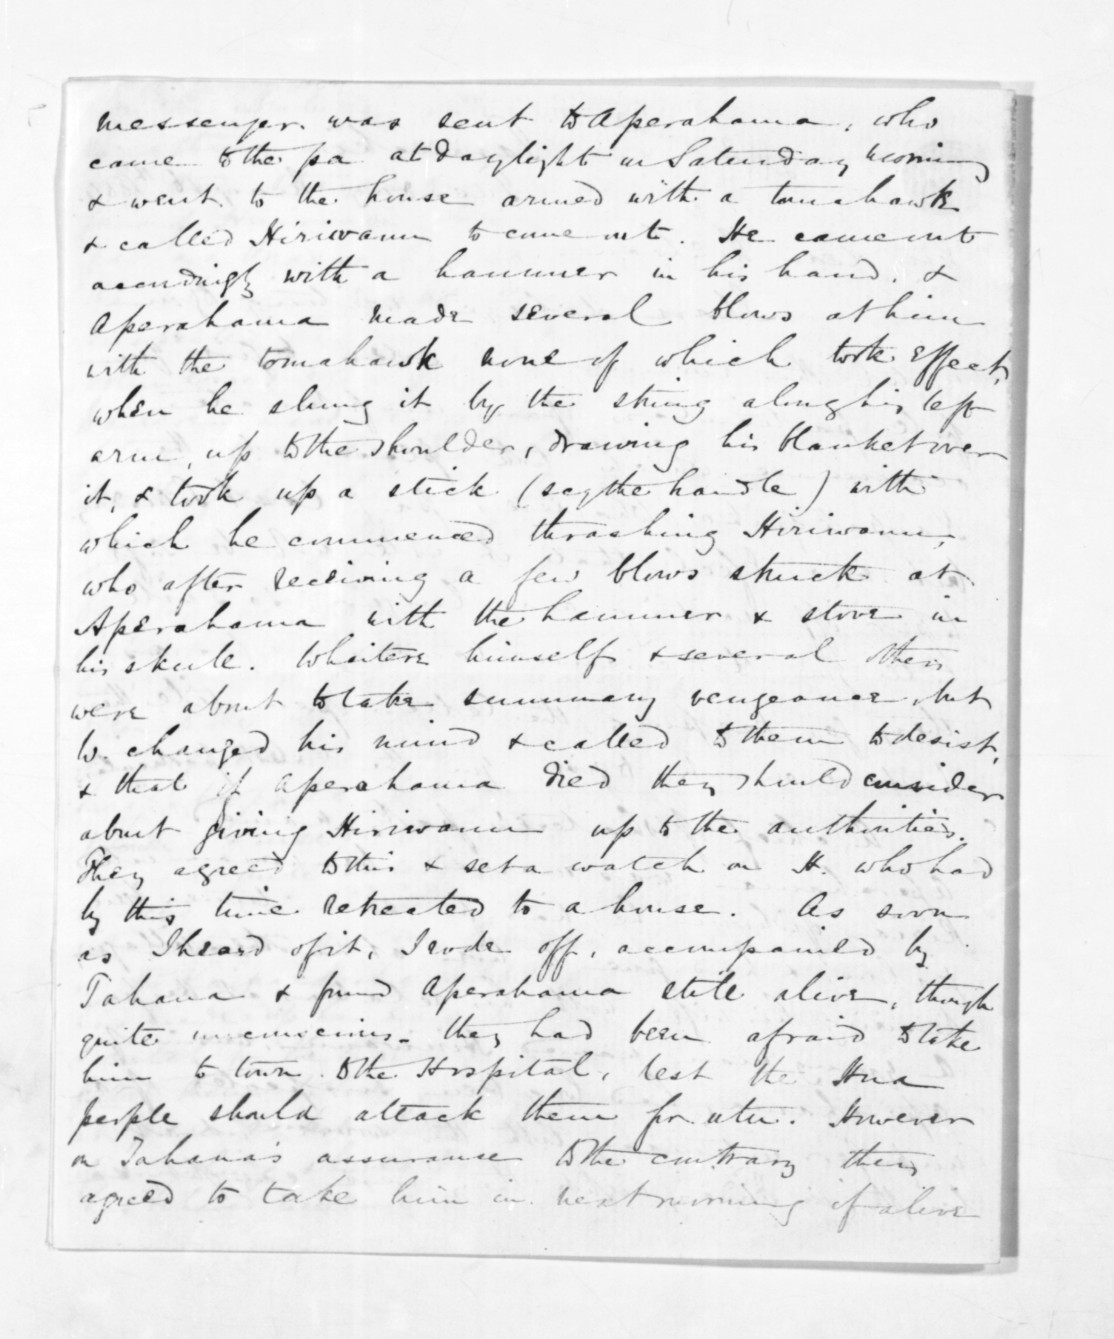 messenger was sent to Aperahama, who
came to the pa at daylight on Saturday morning
& went to the house armed with a tomahawk
& called Hiriwanu to come out. He came out
accordingly with a hammer in his hand, &
Aperahama made several blows at him
with the tomahawk none of which took effect,
when he slung it by the string along his left
arm, up to the shoulder, drawing his blanket over
it, & took up a stick (scythe handle) with
which he commenced thrashing Hiriwanu,
who after receiving a few blows struck at
Aperahama with the hammer & stove in
his skull. Whaitere himself & several others
were about to take summary vengeance, but
W. changed his mind & called to them to desist,
& that if Aperahama died they should consider
about giving Hiriwanu up to the authorities.
They agreed to this & set a watch on H. who had
by this time retreated to a house. As soon
as I heard of it, I rode off, accompanied by
Tahana & found Aperahama still alive, though
quite unconscious. they had been afraid to take
him to town to the Hospital, lest the Hua
people should attack them for utu. However
on Tahana's assurance to the contrary they
agreed to take him in next morning if alive